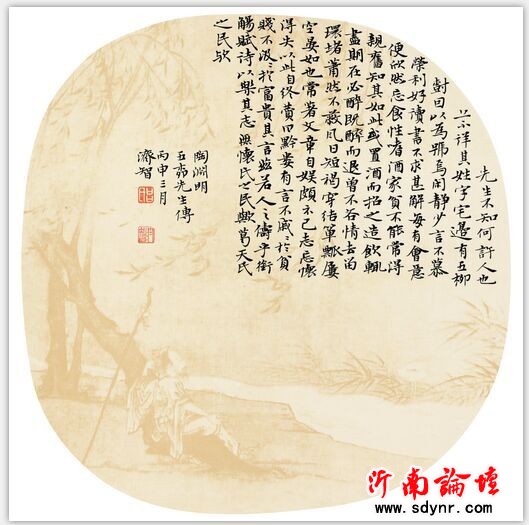 先生不知何許人也
亦不詳其姓字宅邊有五柳
尌因以為號焉閑静少言不慕
榮利好讀書不求甚解每有會意
便欣然忘食性嗜酒家貧不能常得
親舊知其如此或置酒而招之造飲輒
盡期在必醉既醉而退曾不吝情去留
環堵蕭然不蔽風日短褐穿結簞瓢屢
空晏如也常著文章自娛頗示己志忘懷
得失以此自終贊曰黔婁有言不戚〻於貧
賤不汲〻於富貴其言茲若人之儔乎銜
觴賦詩以樂其志無懷氏之民與葛天氏
之民歟
陶淵明
五柳先生傳
丙申三月
沂南論壇
www.sdynr.com